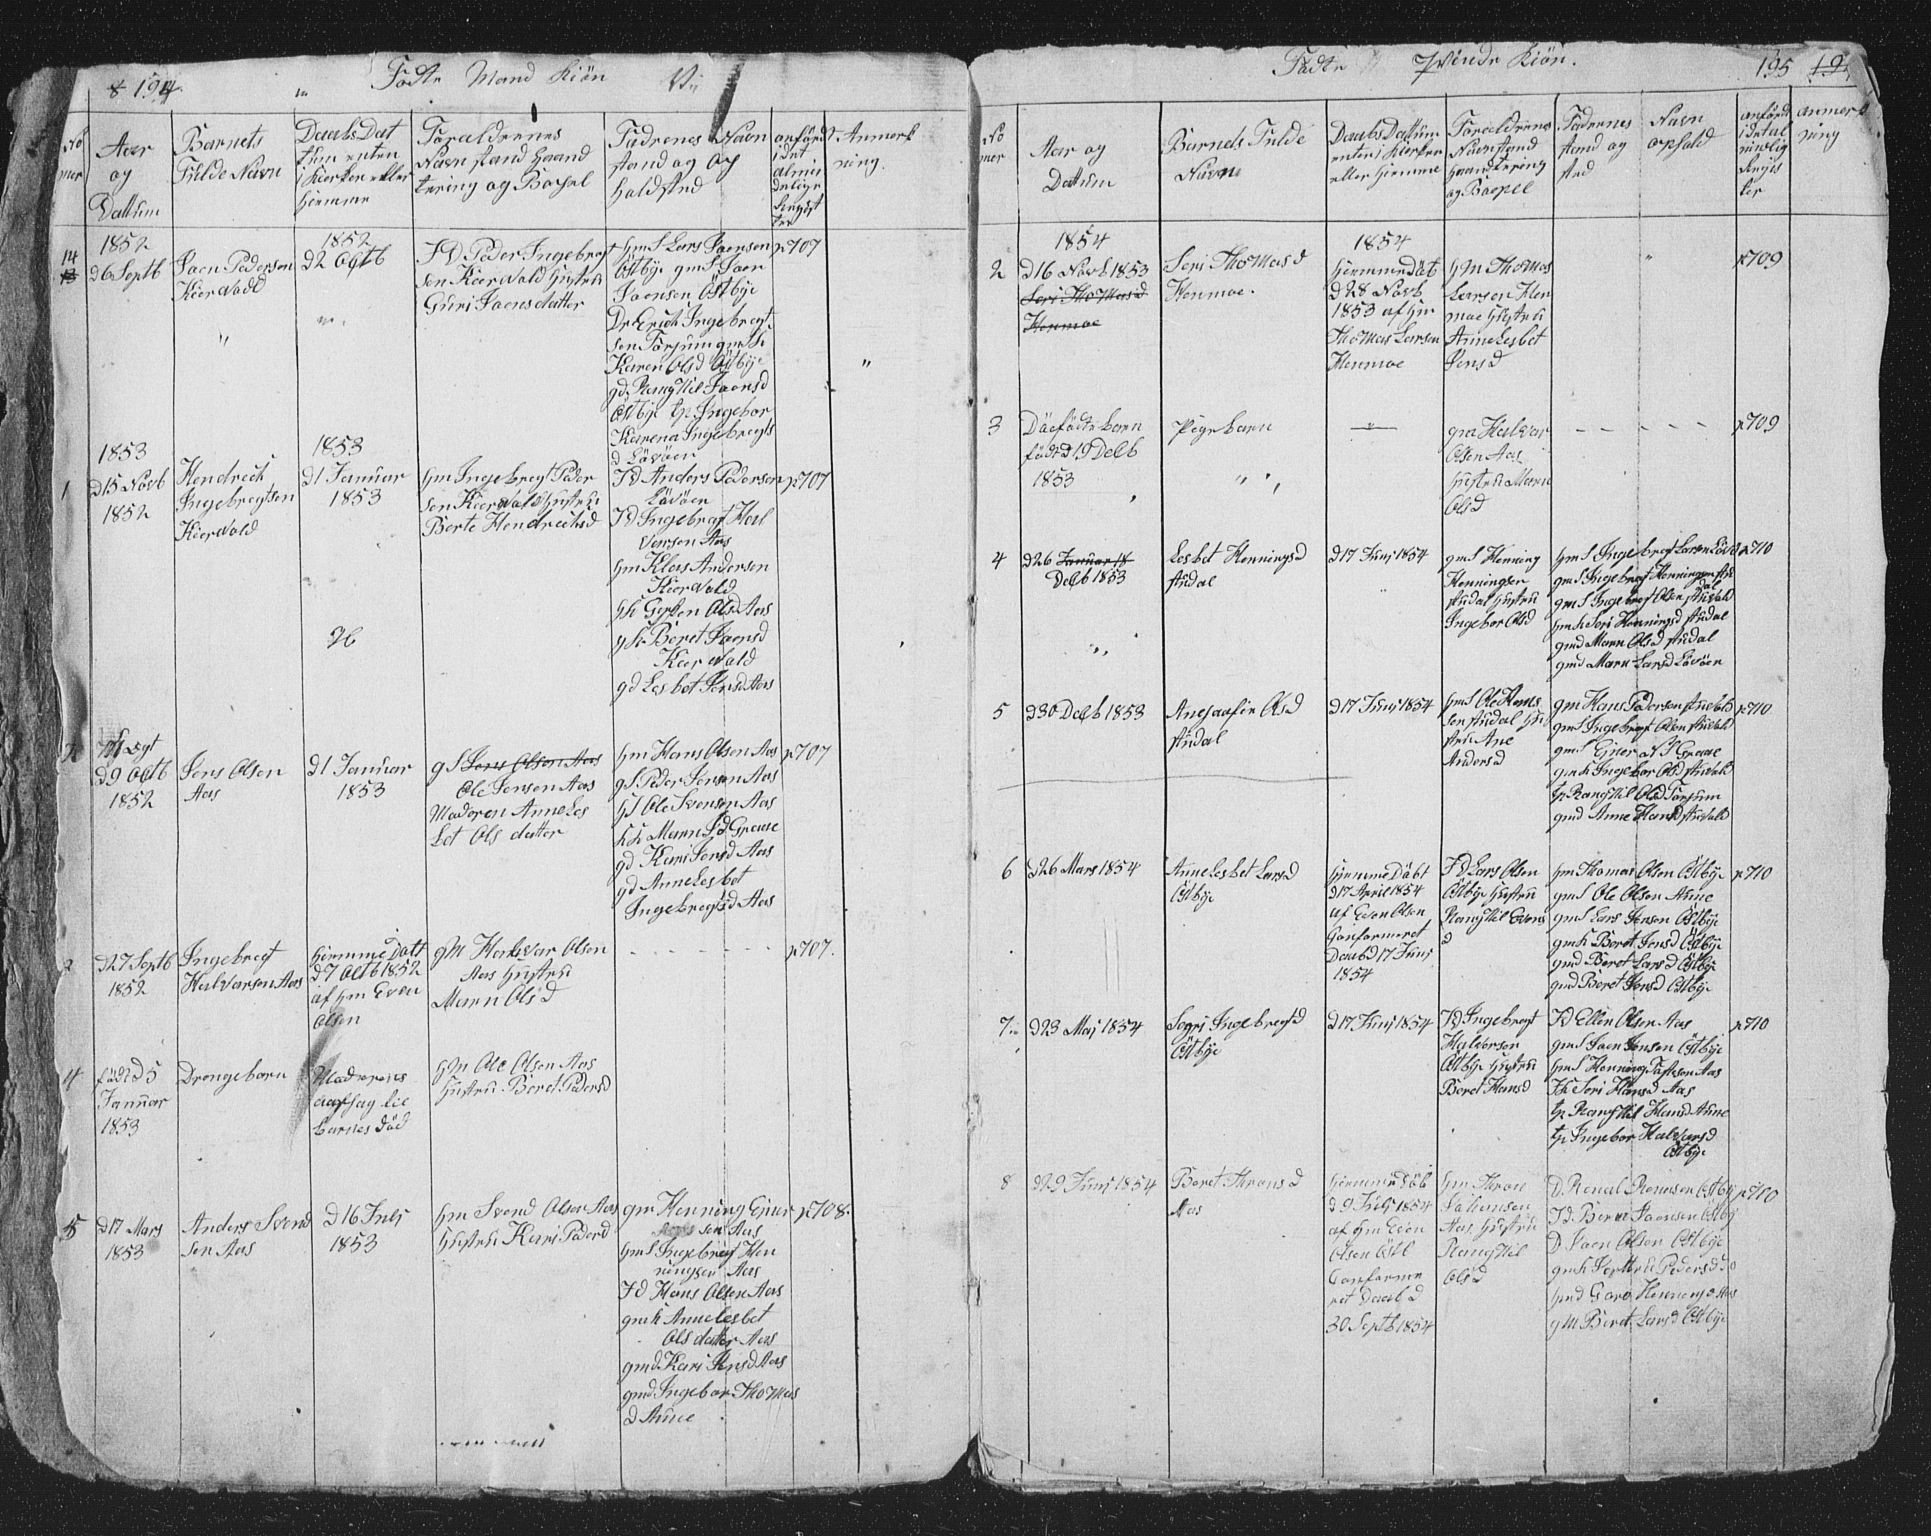 194
Födte Mand Kiön
No
mer
Aar
og
Dattum
Barnets
Fulde Navn
Daabs Dat
tum enten
i Kierken eller
hiemme
Foraldrenes
Navn stand haand
tering og Bopal
Fadrenes Navn
stand og og
holdsted
anfördt
i det
almi
delige
Regist
ter
Anmerk
ning.
14
1852
d6 Septb
Jaen Pedersen
Kierwald
1852
d2 Octb
Peder Ingebregt
sen Kierwald Hustru
Guri Jaensdatter
hm S Lars Jaensen
Östbye gm S Jaen
Jaensen Östbye
Dr Erich Ingebregt
sen Torjum gm K
Karen Olsd Östbye
gd Rangthil Jaensd
Östbye tp Ingebor
Karena Ingebregts
d Lövöen
p707
1
1853
d15 Novb
1852
Hendrech
Ingebregtsen
Kierwald
1853
d1 Januar
1853
hm Ingebregt Peder
sen Kierwald Hustru
Berte Hendrechsd
Fd Anders Pedersen
Lövöen
Fd Ingebregt Hal
versen Aas
hm Klas Andersen
Kierwald
hK Gertken Olsd Aas
gK Beret Jaensd
Kierwald
gd Lesbet Jensd Aas
p707
d9 Octb
1852
Jens Olsen
Aas
d1 Januar
1853
gS Jens Olsen Aas
Ole Jensen Aas
Moderen Anne Les
bet Ols datter
hm Hans Olsen Aas
gS Peder Jensen Aas
hS Ole Svensen Aas
Maren Graae
gd Kari Jensd Aas
gd Anne Lesbet
Ingebregtsd Aas
p707
3
d27 Septb
1852
Ingebregt
Halvarsen Aas
hiemme Dött
d7 Octb 1852
af hm Even
Olsen
gm Halvar Olsen
Aas Hustru
Maren Olsd
p707.
4
föd d5
Januar
1853
Drengebarn
Moderens
udsag lie
barnes död
hm Ole Olsen Aas
Hustru Beret Pedersd
5
d17 Mars
1853
Anders Svend
sen Aas
d16 Julj
1853
hm Svend Olsen Aas
Hustru Kari Pedersd
gm Henning Einer
sen Aas
hm S Ingebregt Hen
ningsen Aas
Fd Hans Olsen Aas
gm K Anne Lesbet
Ols datter Aas
gmd Kari Jensd Aas
gmd Ingebor Thomas
d Aune
p708.
Födte Qvinde Kiön.
195
No
mer
Aar og
Dattum
Barnets Fulde
Navn
Daabs Dattum
enten i Kierken
eller hiemme
Foraldrenes
Navn stand
haandtering
og Boopel
Fadrenes
stand og
sted
Navn
ophold
anfördt
i det al
mindelig
Regis
ter
anmerk
ning
2
1854
d16 Novb 1853
Seri Thomasd
Henmoe
Seri Thomasd
Henmoe.
1854
hiemme Döbt
d28 Novb
1853 af hm
Thomas Larsen
Henmoe
hm Thomas
Larsen Hen
moe Hustru
Anne Lesbet
Jensd
p709
3
Döefödte barn
föd d19 Decb
1853
Pigebarn
gm Halvar
Olsen Aas
Hustru Maren
Olsd
p709
4
d26 Januar 18
Decb 1853
Lesbet Henningsd
studal
d17 Junj 1854
gm S Henning
Henningsen
studal Hustru
Ingebor Olsd
hm S Ingebregt Larsen Löv
gm S Ingebregt Henningsen stu
dal
gm S Ingebregt Olsen studald
hm K Seri Henningsd studal
gmd Maren Olsd studal
gmd Maren Larsd Lövöen
p710
5
d30 Decb 1853
Anejaafin Olsd
studal
d17 Junj 1854
hm S Ole Hans
sen studal Hu
stru Ane
Andersd
gm Hans Pedersen studald
gm S Ingebregt Olsen studald
gm S Einer N S Graae
gm K Ingebor Olsd studald
tp Rangthil Olsd Torjum
gmd Anne Hansd studald
p710
6
d26 Mars 1854
Anne Lesbet Larsd
Östbye
hiemme Döbt
d17 April 1854
af Even Olsen
Conformeret
Daabd 17 Junj
1854
Fd Lars Olsen
Östbye Hustru
Rangthil Evens
d
hm Thomas Olsen Östbye
gm S Ole Olsen Aune
gm S Lars Jensen Östbye
gm K Beret Jensd Östbye
gmd Beret Larsd Östbye
gmd Beret Jensd Östbye
p710
7
d23 Maj 1854
Segri Ingebregtsd
Östbye
d17 Junj 1854
Fd Ingebregt
Halvorsen
Östbye Hustru
Beret Hansd
Fd Ellen Olsen Aas
gm S Jaen Jensen Östbye
hm S Henning Tostesen Aas
FK Seri Hansd Aas
tp Rangthil Hansd Aune
tp Ingebor Halvarsd
Östbye
p710
8
d29 Junj 1854
Beret Thronsd
Aas
hiemme döb
d9 Julj 1854
af hm Even
Olsen Östb
Conforme
ret Daabd
30 Septb 1854
hm Thron
Aas Hustru
Rangthil
Olsd
D Renal Rennsen Östby
Fd Jaensen Östby
D Jaen Olsen Östbye
gm K Pedersd do
hmd Henningsd Aas
gm Beret Larsd Östbye
p710